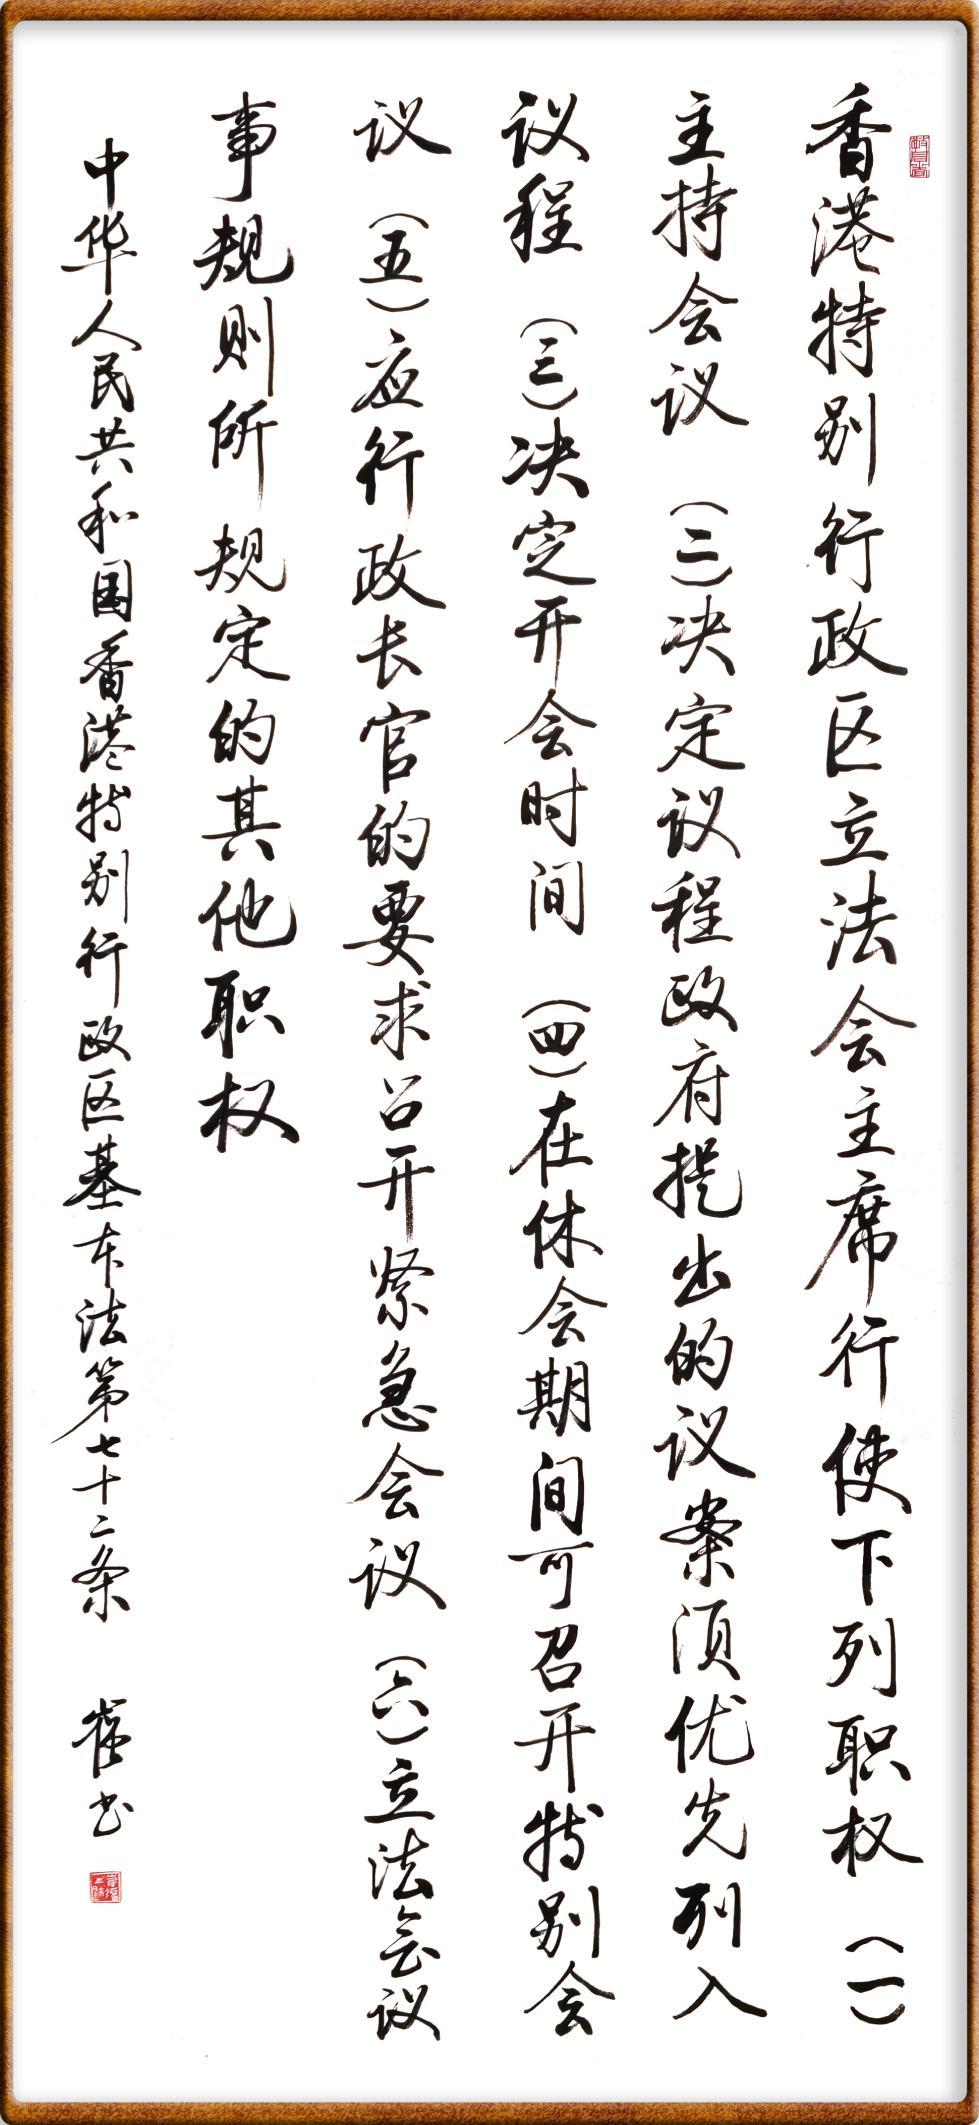 香港特别行政区立法会主席行使下列职权（一）
主持会议（二）决定议程政府提出的议案须优先列入
议程（三）决定开会时间（四）在休会期间可召开特别会
议（五）应行政长官的要求召开紧急会议（六）立法会议
事规则所规定的其他职权
中华人民共和国香港特别行政区基本法第七十二条 崔书